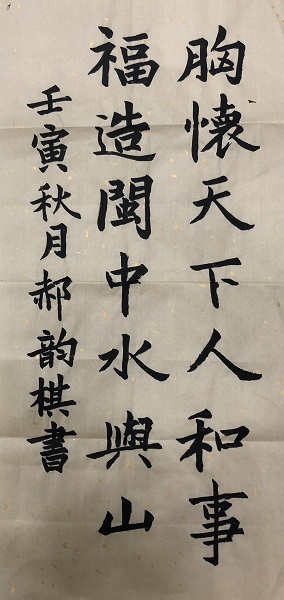 胸懐天下人和事
福造閩中水與山
壬寅秋月郝韵棋書